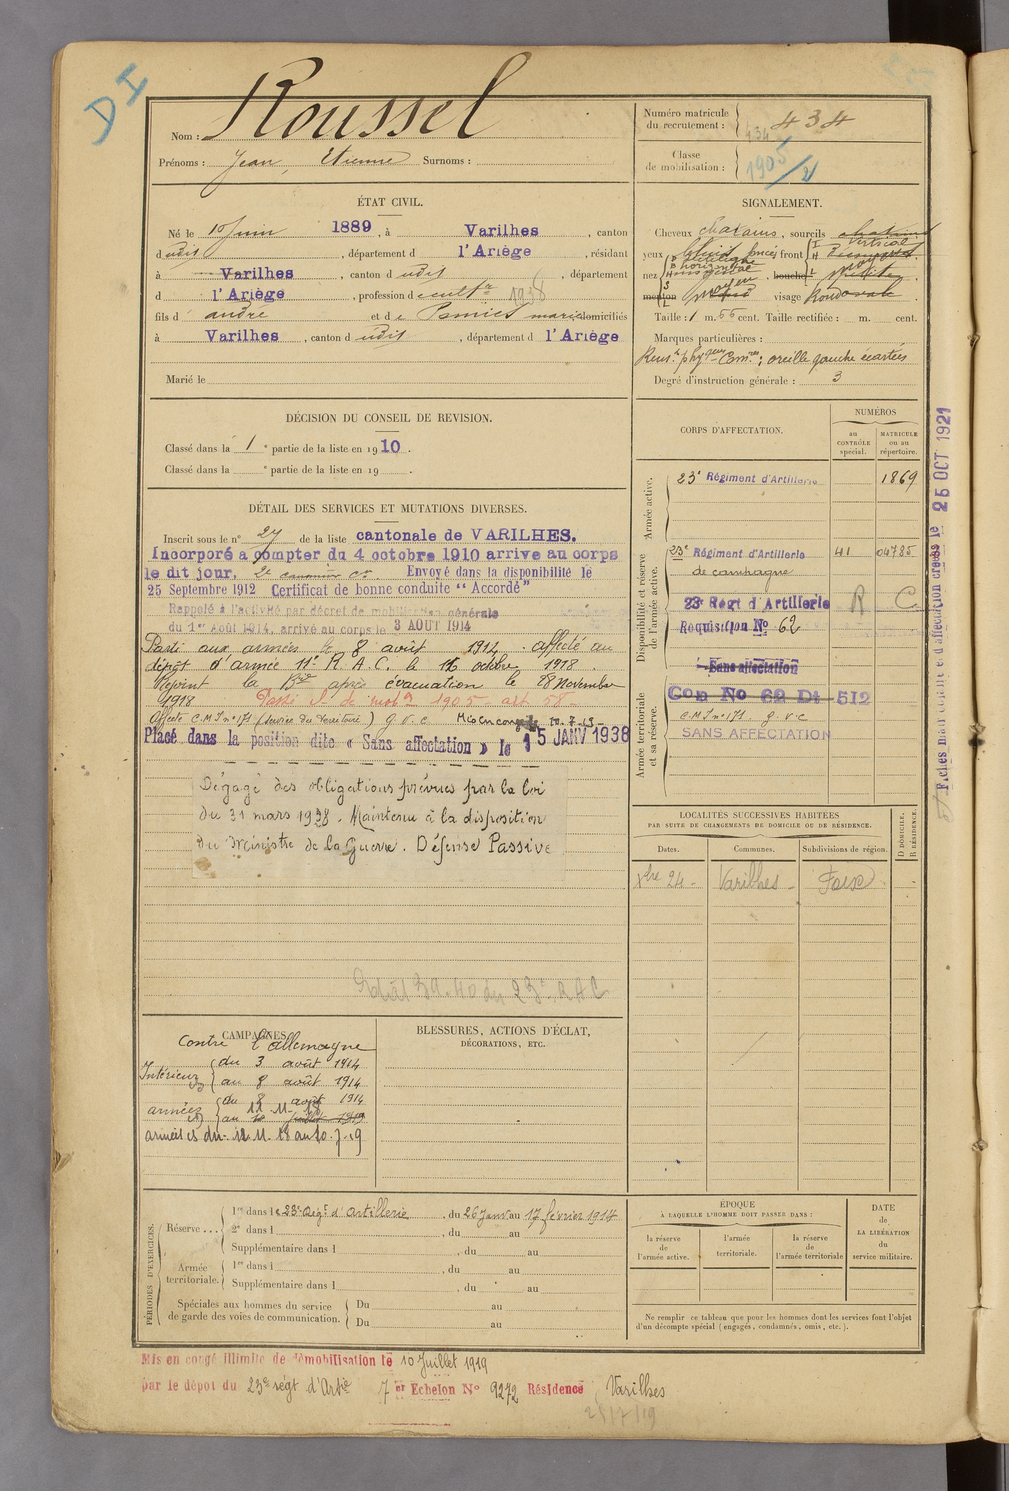 DI
Nom : Roussel
Prénoms : Jean, Etienne Surnoms :
Numéro matricule du recrutement : 434
434
Classe de mobilisation : 1905/2
ÉTAT CIVIL.
Né le 10 Juin 1889, à Varilhes, canton
dudit, département d l'Ariège, résidant
à Varilhes, canton dudit, département
d l'Ariège, profession de cultr 1938
fils d' André et de Pamies Marie domiciliés
à Varilhes, canton dudit, département d l'Ariège
Marié le
SIGNALEMENT.
Cheveux chatains, sourcils chatains
yeux foncés front vertical
nez bouche moyenne
menton visage Rond ovale
Taille : 1 m. 66 cent. Taille rectifiée : m. cent.
Marques particulières :
oreille gauche écartée
Degré d'instruction générale : 3
DÉCISION DU CONSEIL DE REVISION.
Classé dans la 1e partie de la liste en 1910.
Classé dans la e partie de la liste en 19 .
DÉTAIL DES SERVICES ET MUTATIONS DIVERSES.
Inscrit sous le n° 27 de la liste cantonale de VARILHES.
Incorporé à compter du 4 octobre 1910 arrivé au corps
le dit jour, 2e canonnier Envoyé dans la disponibilité le
25 Septembre 1912 Certificat de bonne conduite "Accordé"
Rappelé à l'activité par décret de mobilisation générale
du 1er Août 1914, arrivé au corps le 3 AOUT 1914
Parti aux armées le 8 août 1914. affecté au
dépôt d'armée 11e R.A.C. le 16 octobre 1918.
Rejoint la Bie après évacuation le 18 Novembre
1918 Passé Cl. de mob 1905 art. 58
Affecté C.M.I n° 171 g.v.c Mis en congé le 10-7-19
Placé dans la position dite « Sans affectation » le 15 JANV 1938
Dégagé des obligations prévues par la loi
du 31 mars 1928. Maintenu à la disposition
du Ministre de la Guerre. Défense Passive
39-40 du 23e RAC
CORPS D'AFFECTATION.
NUMÉROS
au CONTRÔLE spécial.
MATRICULE ou au répertoire.
Armée active.
23e Régiment d'Artillerie 1869
Disponibilité et réserve de l'armée active.
23e Régiment d'Artillerie 41 04785
de campagne
23e Régt d'Artillerie R C
Requisition No 62
Sans affectation
Armée territoriale et sa réserve.
Con No 62 Dt 512
C.M.I n° 171 g.v.c
SANS AFFECTATION
Fiches matricule et d'affectation créées le 26 OCT 1921
LOCALITÉS SUCCESSIVES HABITÉES
PAR SUITE DE CHANGEMENTS DE DOMICILE OU DE RÉSIDENCE.
Dates. Communes. Subdivisions de région.
D DOMICILE. R RÉSIDENCE.
Xbre 24 - Varilhes - Foix
CAMPAGNES.
Contre l'Allemagne
Intérieur du 3 août 1914
au 8 août 1914
armées du 8 août 1914
au 11-11-18
armées du 12.11.18 au 10-7-19
BLESSURES, ACTIONS D'ÉCLAT,
DÉCORATIONS, ETC.
PÉRIODES D'EXERCICES.
Réserve ...
1re dans le 23e Régt d'Artillerie, du 26 Janv au 17 février 1914
2e dans l , du au
Supplémentaire dans l , du au
Armée territoriale.
1re dans l , du au
Supplémentaire dans l , du au
Spéciales aux hommes du service de garde des voies de communication.
Du au
Du au
ÉPOQUE
À LAQUELLE L'HOMME DOIT PASSER DANS :
la réserve de l'armée active.
l'armée territoriale.
la réserve de l'armée territoriale
DATE de LA LIBÉRATION du service militaire.
Ne remplir ce tableau que pour les hommes dont les services font l'objet
d'un décompte spécial (engagés, condamnés, omis, etc.).
Mis en congé illimité de démobilisation le 10 Juillet 1919
par le dépôt du 23e régt d'Artie 7er Echelon No 9272 Résidence Varilhes